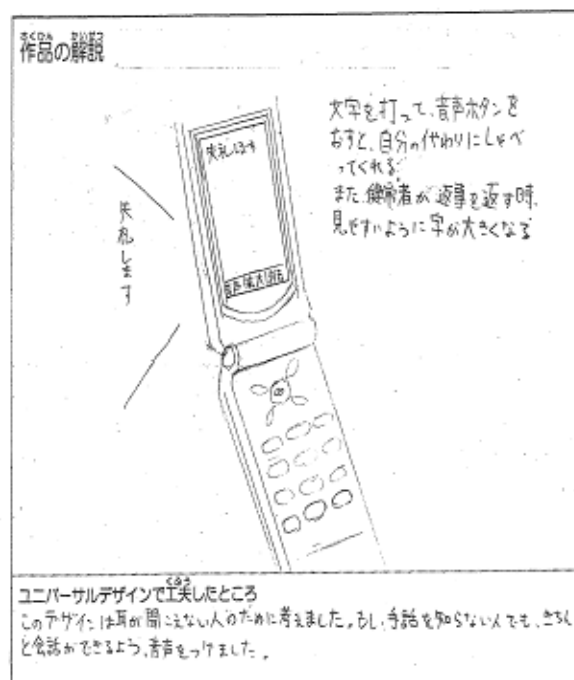 さくひん かいせつ
作品の解説
文字を打って、音声ボタンを
おすと、自分の代わりにしゃべ
ってくれる。
また、健常者が返事を返す時、
見やすいように字が大きくなる
失礼します
失礼します
音声 拡大
くふう
ユニバーサルデザインで工夫したところ
このデザインは耳が聞こえない人のために考えました。もし、手話を知らない人でも、きちん
と会話ができるよう、音声をつけました。